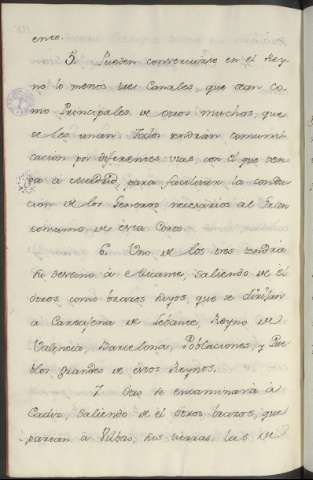 ente.
5. Pueden construirse en el Rey-
no lo menos tres Canales, que sean co-
mo Principales de otros muchos, que
se les unan. Todos tendrán comuni-
cación por diferentes vias, con el que ven-
ga à Madrid, para facilitar la conduc-
cion de los Generos necesarios al
consumo de esta Corte.
6. Uno de los tres tendria
su destino à Alicante, saliendo de èl
otros, como brazos suyos, que se dirijan
à Cartajena de Lebante, Reyno de
Valencia, Barcelona, Poblaciones, y Pue-
blos grandes de estos Reynos.
7. Otro se encaminaria à
Cadiz, saliendo de èl otros brazos, que
pasean à Bilbao, sus tierras, las de